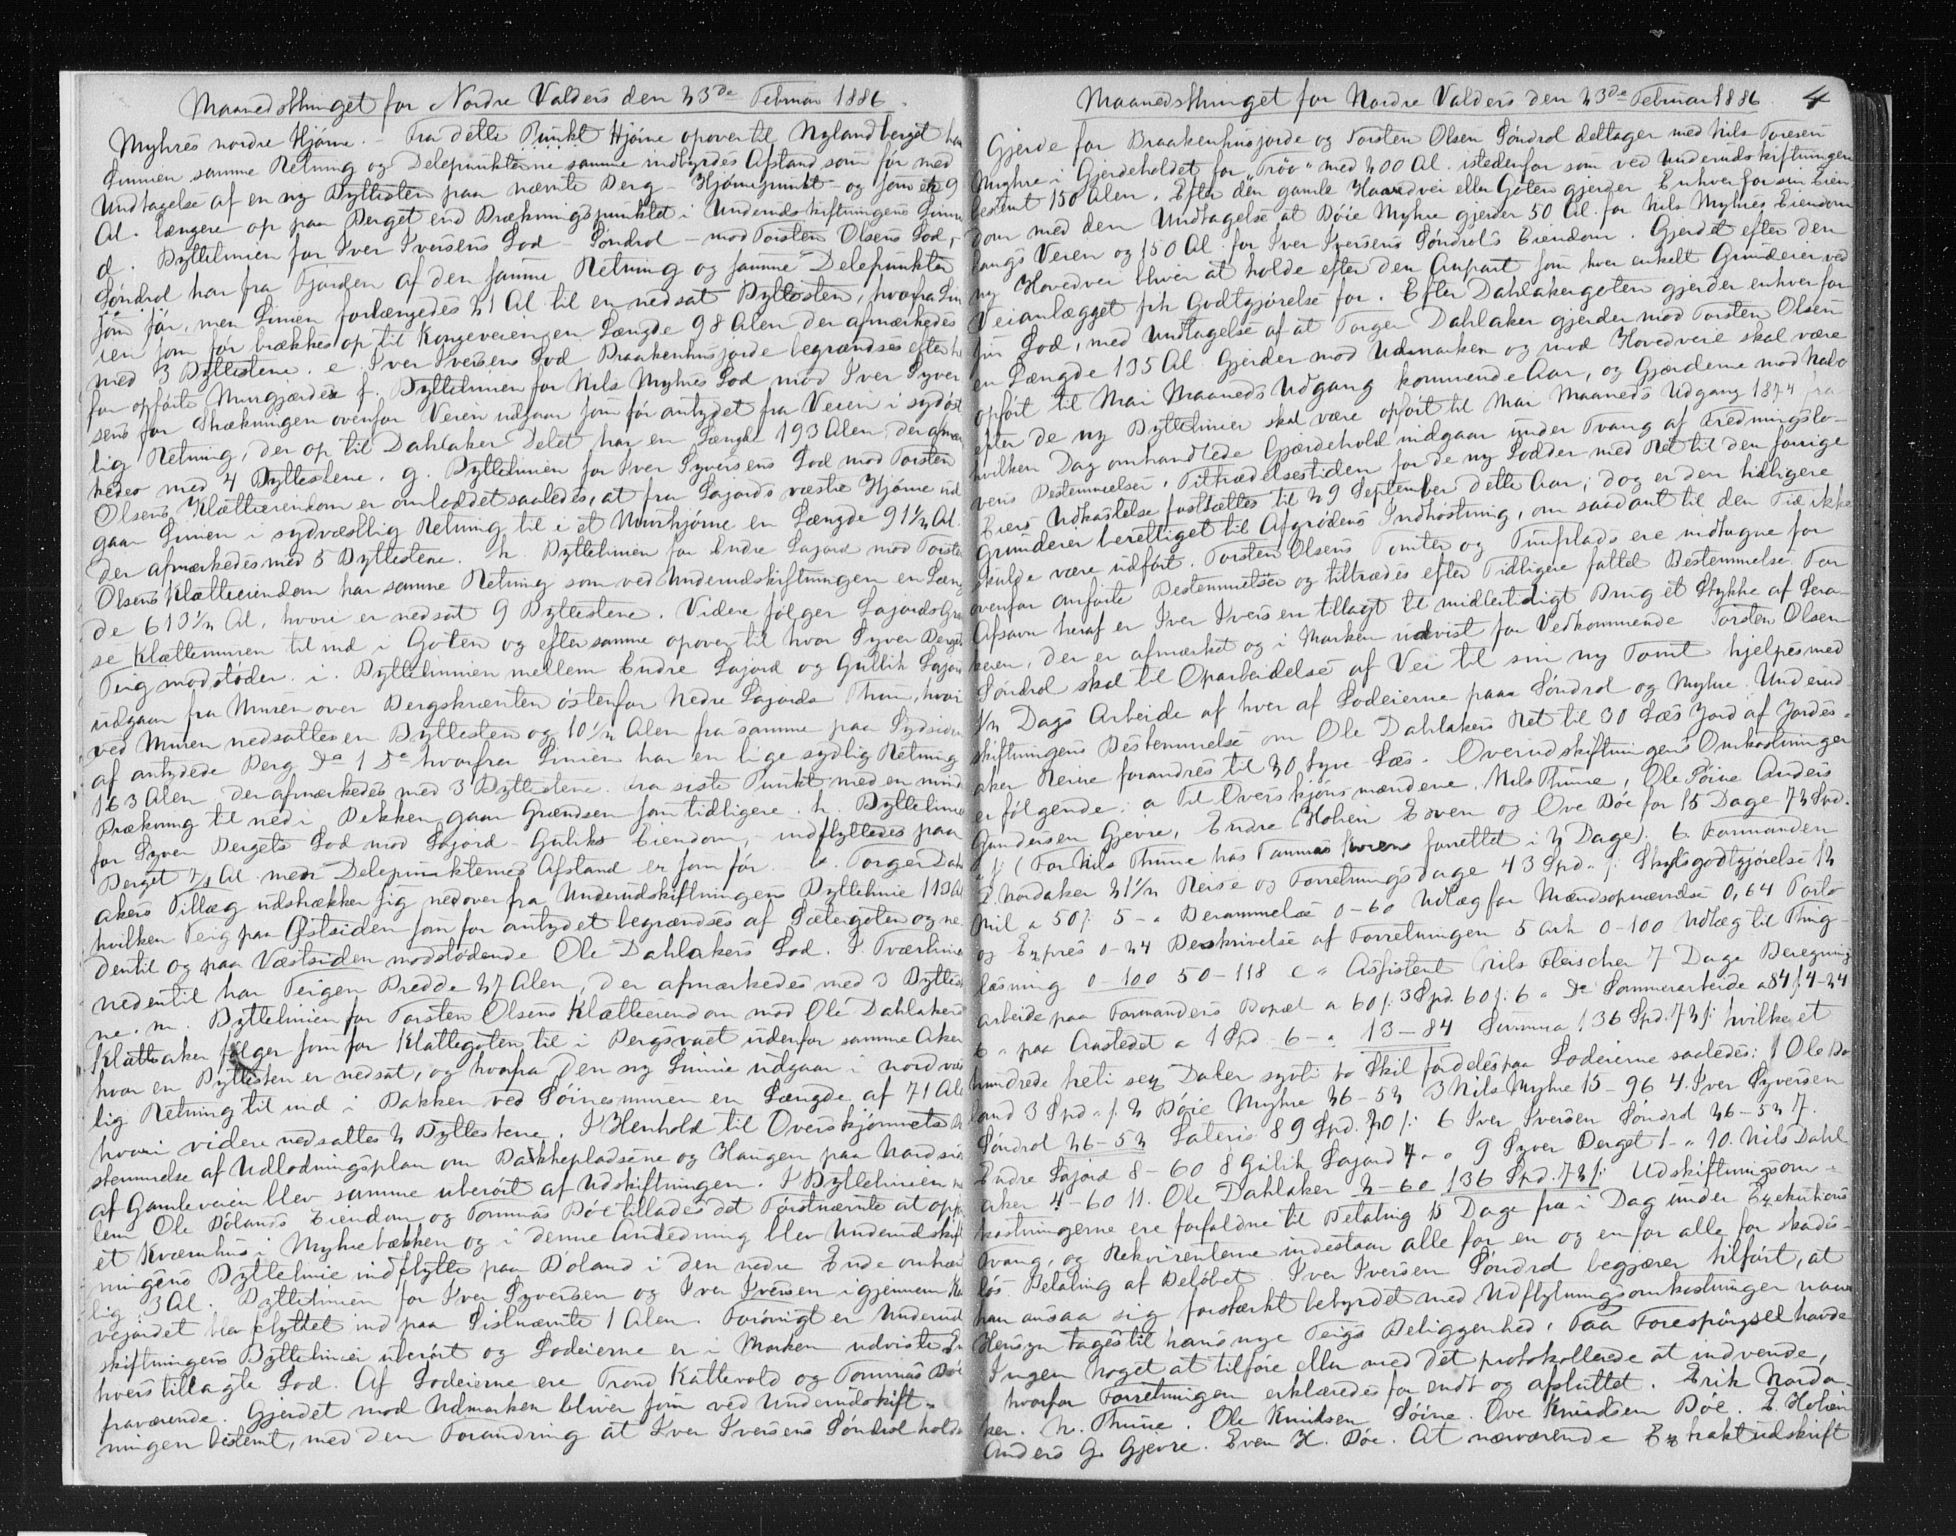 Maanedsthinget for Nordre Valders den 23de Februar 1886.
Myhres nordre Hjørne. - Fra dette Punkt Hjørne opover til Nylandberget har
Linnien samme Retning og Delepunkterne samme indbyrdes Afstand som før med
Undtagelse af en ny Byttesten paa nævnte Berg - Hjørnepunkt - og som er 9
Al. længere op paa Berget end Brækningspunktet i Underudskiftningens Linnie
d. Byttelinien for Iver Iversens Lod - Søndrol - mod Torsten Olsens Lod,
Søndrol har fra Fjorden af den samme Retning og samme Delepunkter
som før, men Linien forlænges 21 Al. til en nedsat Byttesten, hvorfra Lin
ien som før brækkes op til Kongeveien en Længde 98 Alen der afmærkedes
med 3 Byttestene. e. Iver Iversens Lod Braakenhusjorde begrændses efter
før opførte Murgjærder f. Byttelinien for Nils Myhres Lod mod Iver Syver
sens for Strækningen ovenfor Veien udgaar som før antydet fra Veien i sydøst
lig Retning, der op til Dahlaker Delet har en Længde 193 Alen, der afmær
kedes med 4 Byttestene. g. Byttelinien for Iver Syversens Lod mod Torsten
Olsens Klætteiendom er omloddet saaledes, at fra Lajords væstre Hjørne ud
gaar Linien i sydvæstlig Retning til i et Murhjørne en Længde 91½ Al.
der afmærkedes med 5 Byttestene. h. Byttelinien for Endre Lajord mod Torsten
Olsens Klætteeiendom har samme Retning som ved Underudskiftningen en Læng
de 613½ Al, hvori er nedsat 9 Byttestene. Videre følger Lajords Græn
se Klættemuren til ind i Goten og efter samme opover til hvor Syver Bergets
Teig modstøder. i. Byttelinnien mellem Endre Lajord og Gullik Lajord
udgaar fra Muren over Bergskrænten østenfor Nedre Lajords Thun, hvor
ved Muren nedsattes en Byttesten og 10½ Alen fra samme paa Sydsiden
af antydede Berg do 1 do hvorfra Linien har en lige sydlig Retning
163 Alen der afmærkedes med 3 Byttestene. Fra siste Punkt med en mindre
Brækning til ned i Bekken gaar Grændsen som tidligere. k. Byttelinien
for Syver Bergets Lod mod Lajord - Guliks Eiendom, - indflyttedes paa
Berget Al. men Delepunkternes Afstand er som før. l. Torger Dahl
akers Tillæg udstrækker sig nedover fra Underudskiftningens Byttelinie 113 Al
hvilken Teig paa Østsiden som før antydet begrændses af Sætergoten og ne
dentil og paa Væstsiden modstødende Ole Dahlakers Lod. I Tværlinie
nedentil har Teigen Bredde 27 Alen, der afmærkedes med 3 Byttest
ne. m. Byttelinien for Torsten Olsens Klætteeiendom mod Ole Dahlakers
Klætteaker følger som før Klættegoten til i Bergsvaet udenfor samme Aker
hvor en Byttesten er nedsat, og hvorfra den ny Linnie udgaar i nordvæst
lig Retning til ind i Bakken ved Søinesmuren en Længde af 71 Alen
hvori videre nedsattes 2 Byttestene. I Henhold til Overskjønnets Be
stemmelse af Udlodningsplan om Bakkepladsene og Haugen paa Nordsiden
af Gamleveien blev samme uberørt af Udskiftningen. I Byttelinien mel
lem Ole Bølands Eiendom og Tommas Bøe tillades det Førstnævnte at opføre
et Kværnhus i Myhrebækken og i denne Anledning blev Underudskift
ningens Byttelinie indflytte paa Bøland i den nedre Ende omtrent
lig 3 Al. Byttelinien for Iver Syversen og Iver Iversen igjennem
vejordet blev flyttet ind paa Sistnævnte 1 Alen. Forøvrigt er Underud
skiftningens Byttelinier uberørt og Lodeierne er i Marken udviste En
hvers tillagte Lod. Af Lodeierne ere Trond Kattevold og Tommas Bøe
fraværende. Gjerdet mod Udmarken bliver som ved Underudskift-
ningen bestemt, med den Forandring at Iver Iversens Søndrol holder
Maanedsthinget for Nordre Valders den 23de Februar 1886. 4
Gjerde for Braakenhusjorde og Torsten Olsen Søndrol deltager med Nils Toresen
Myhre i Gjerdeholdet for "Trøo" med 200 Al. istedenfor som ved Underudskiftningen
bestemt 150 Alen. Efter den gamle Hovedvei eller Goten gjerder Enhver for sin Eien
dom med den Undtagelse at Bøie Myhre gjerder 50 Al. for Nils Myhres Eiendom
langs Veien og 150 Al. for Iver Iversens Søndrol's Eiendom. Gjerdet efter den
ny Hovedvei bliver at holde efter den Anpart som hver enkelt Grundeier ved
Veianlægget fik Godtgjørelse for. Efter Dahlakergoten gjerder enhver for
sin Lod, med Undtagelse af at Torger Dahlaker gjerder mod Torsten Olsen
en Længde 135 Al. Gjerder mod Udmarken og mod Hovedveie skal være
opført til Mai Maaneds Udgang kommende Aar, og Gjærderne mod Nabo
efter de ny Byttelinier skal være opført til Mai Maaneds Udgang 1874 fra
hvilken Dag omhandlede Gjærdehold indgaar under Tvang af Fredningslo-
vens Bestemmelser. Tiltrædelsestiden for de ny Lodder med Ret til den forrige
Eiers Udkastelse fastsættes til 29 September dette Aar; dog er den tidligere
Grundeier berettiget til Afgrødens Indhøstning, om saadant til den Tid ikke
skulde være udført. Torsten Olsens Tomter og Tunplads ere indtagne for
ovenfor anførte Bestemmelser og tiltrædes efter Tidligere fattet Bestemmelse. For
Afsavn heraf er Iver Iversen tillagt til midlertidigt Brug et Stykke af Lera-
keren, der er afmærket og i Marken udvist for Vedkommende Torsten Olsen
Søndrol skal til Oparbeidelse af Vei til sin ny Tomt hjelpes med
½ Dags Arbeide af hver af Lodeierne paa Søndrol og Myhre. Underud-
skiftningens Bestemmelse om Ole Dahlakers Ret til 30 Læs Jord af Jordes-
aker Reine forandres til 20 tyve Læs. Overudskiftningens Omkostninger
er følgende: a Til Overskjønsmændene. Nils Thune, Ole Søine Anders
Gundersen Gjevre, Endre Hølien Even og Ove Bøe for 15 Dage 72 Spd.
" ſ: (For Nils Thune har Tommas forrettet i 2 Dage). b. Formanden
E. Nordaker 21½ Reise og Forretningsdage 43 Spd. " ſ: Skydsgodtgjørelse 12
Mil a 50 ſ: 5 - " Berammelse 0-60 Udlæg for Mændsopnævnelse 0,64 Porto
og Expres 0-24 Beskrivelse af Forretningen 5 Ark 0-100 Udlæg til Thing
læsning 0-100 50-118 c " Assistent Nils Fleischer 7 Dage Beregning
arbeide paa Formandens Bopæl a 60 ſ: 3 Spd. 60 ſ: 6 " do Sommerarbeide a 84 ſ: 4-24
6 " paa Aastedet a 1 Spd. 6 - " 13-84 Summa 136 Spd. 72 ſ: hvilke et
hundrede treti sex Daler sytti to Skil fordeles paa Lodeierne saaledes: 1 Ole Bø
land 3 Spd. " ſ. 2 Bøie Myhre 26-52 3 Nils Myhre 15-96 4. Iver Syversen
Søndrol 26-52 Lateris 89 Spd. 20 ſ: 6 Iver Iversen Søndrol 26-52 7.
Endre Lajord 8-60 8 Gulik Lajord 4 - " 9 Syver Berget 1 - " 10. Nils Dahl-
aker 4-60 11. Ole Dahlaker 2-60 136 Spd. 72 ſ: Udskiftningsom-
kostningerne ere forfaldne til Betaling 15 Dage fra i Dag under Exekutions
Tvang, og Rekvirenterne indestaar alle for en og en for alle for skades-
løs Betaling af Beløbet. Iver Iversen Søndrol begjærer tilført, at
han ansaa sig forstærkt bebyrdet med Udflytningsomkostninger naar
Hensyn tages til hans nye Teigs Beliggenhed. Paa Forespørgsel havde
Ingen noget at tilføre eller med det protokollerede at indvende,
hvorfor Forretningen erklæredes for endt og afsluttet. Erik Norda-
ker. N. Thune. Ole Knudsen Søine. Ove Knudsen Bøe. E. Hølien
Anders G. Gjevre. Even H. Bøe. At nærværende Extraktudskrift